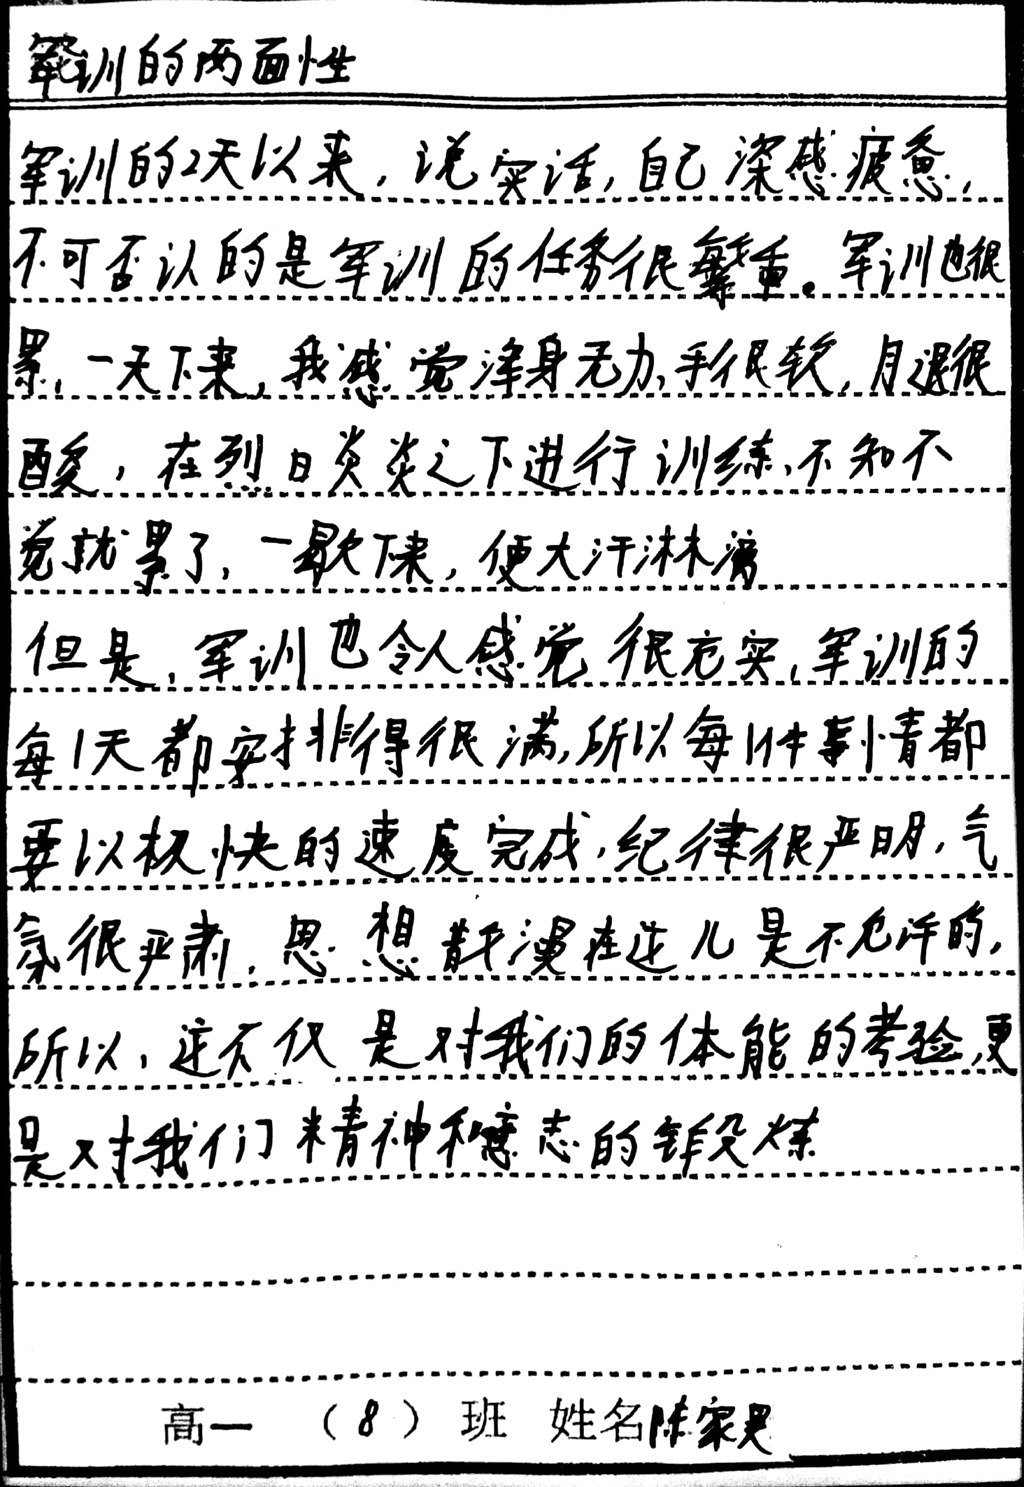 军训的两面性
军训的2天以来，说实话，自己深感疲惫，
不可否认的是军训的任务很繁重。军训也很
累，一天下来，我感觉浑身无力，手很软，腿很
酸，在烈日炎炎之下进行训练，不知不
觉就累了，一歇下来，便大汗淋漓
但是，军训也令人感觉很充实，军训的
每1天都安排得很满，所以每1件事情都
要以极快的速度完成，纪律很严明，气
氛很严肃，思想散漫在这儿是不允许的，
所以，这不仅是对我们的体能的考验，更
是对我们精神和意志的锻炼
高一（8）班 姓名陈家